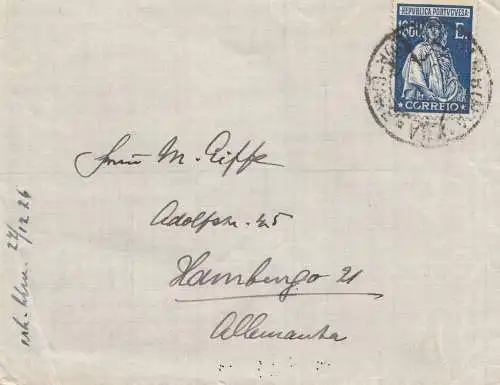 REPUBLICA PORTUGUESA
1$60 E.
CORREIO
Herrn M. Eiffe
Adolfstr. 45
Hamburgo 21
Allemanha
27/12 26